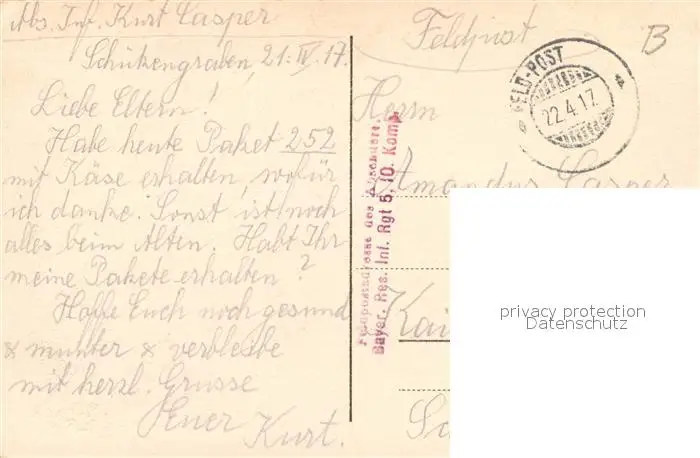 Abs. Inf. Kurt Casper
Schützengraben, 21. IV. 17.
Liebe Eltern!
Habe heute Paket 252
mit Käse erhalten, wofür
ich danke. Sonst ist noch
alles beim Alten. Habt Ihr
meine Pakete erhalten?
Hoffe Euch noch gesund
& munter & verbleibe
mit herzl. Grusse
Euer
Kurt.
Feldpost
B
FELD-POST
22.4.17
Herrn
Amandus Casper
Kai
Feldpostadresse des Absenders:
Bayer. Res. Inf. Rgt 5, 10. Komp.
privacy protection
Datenschutz